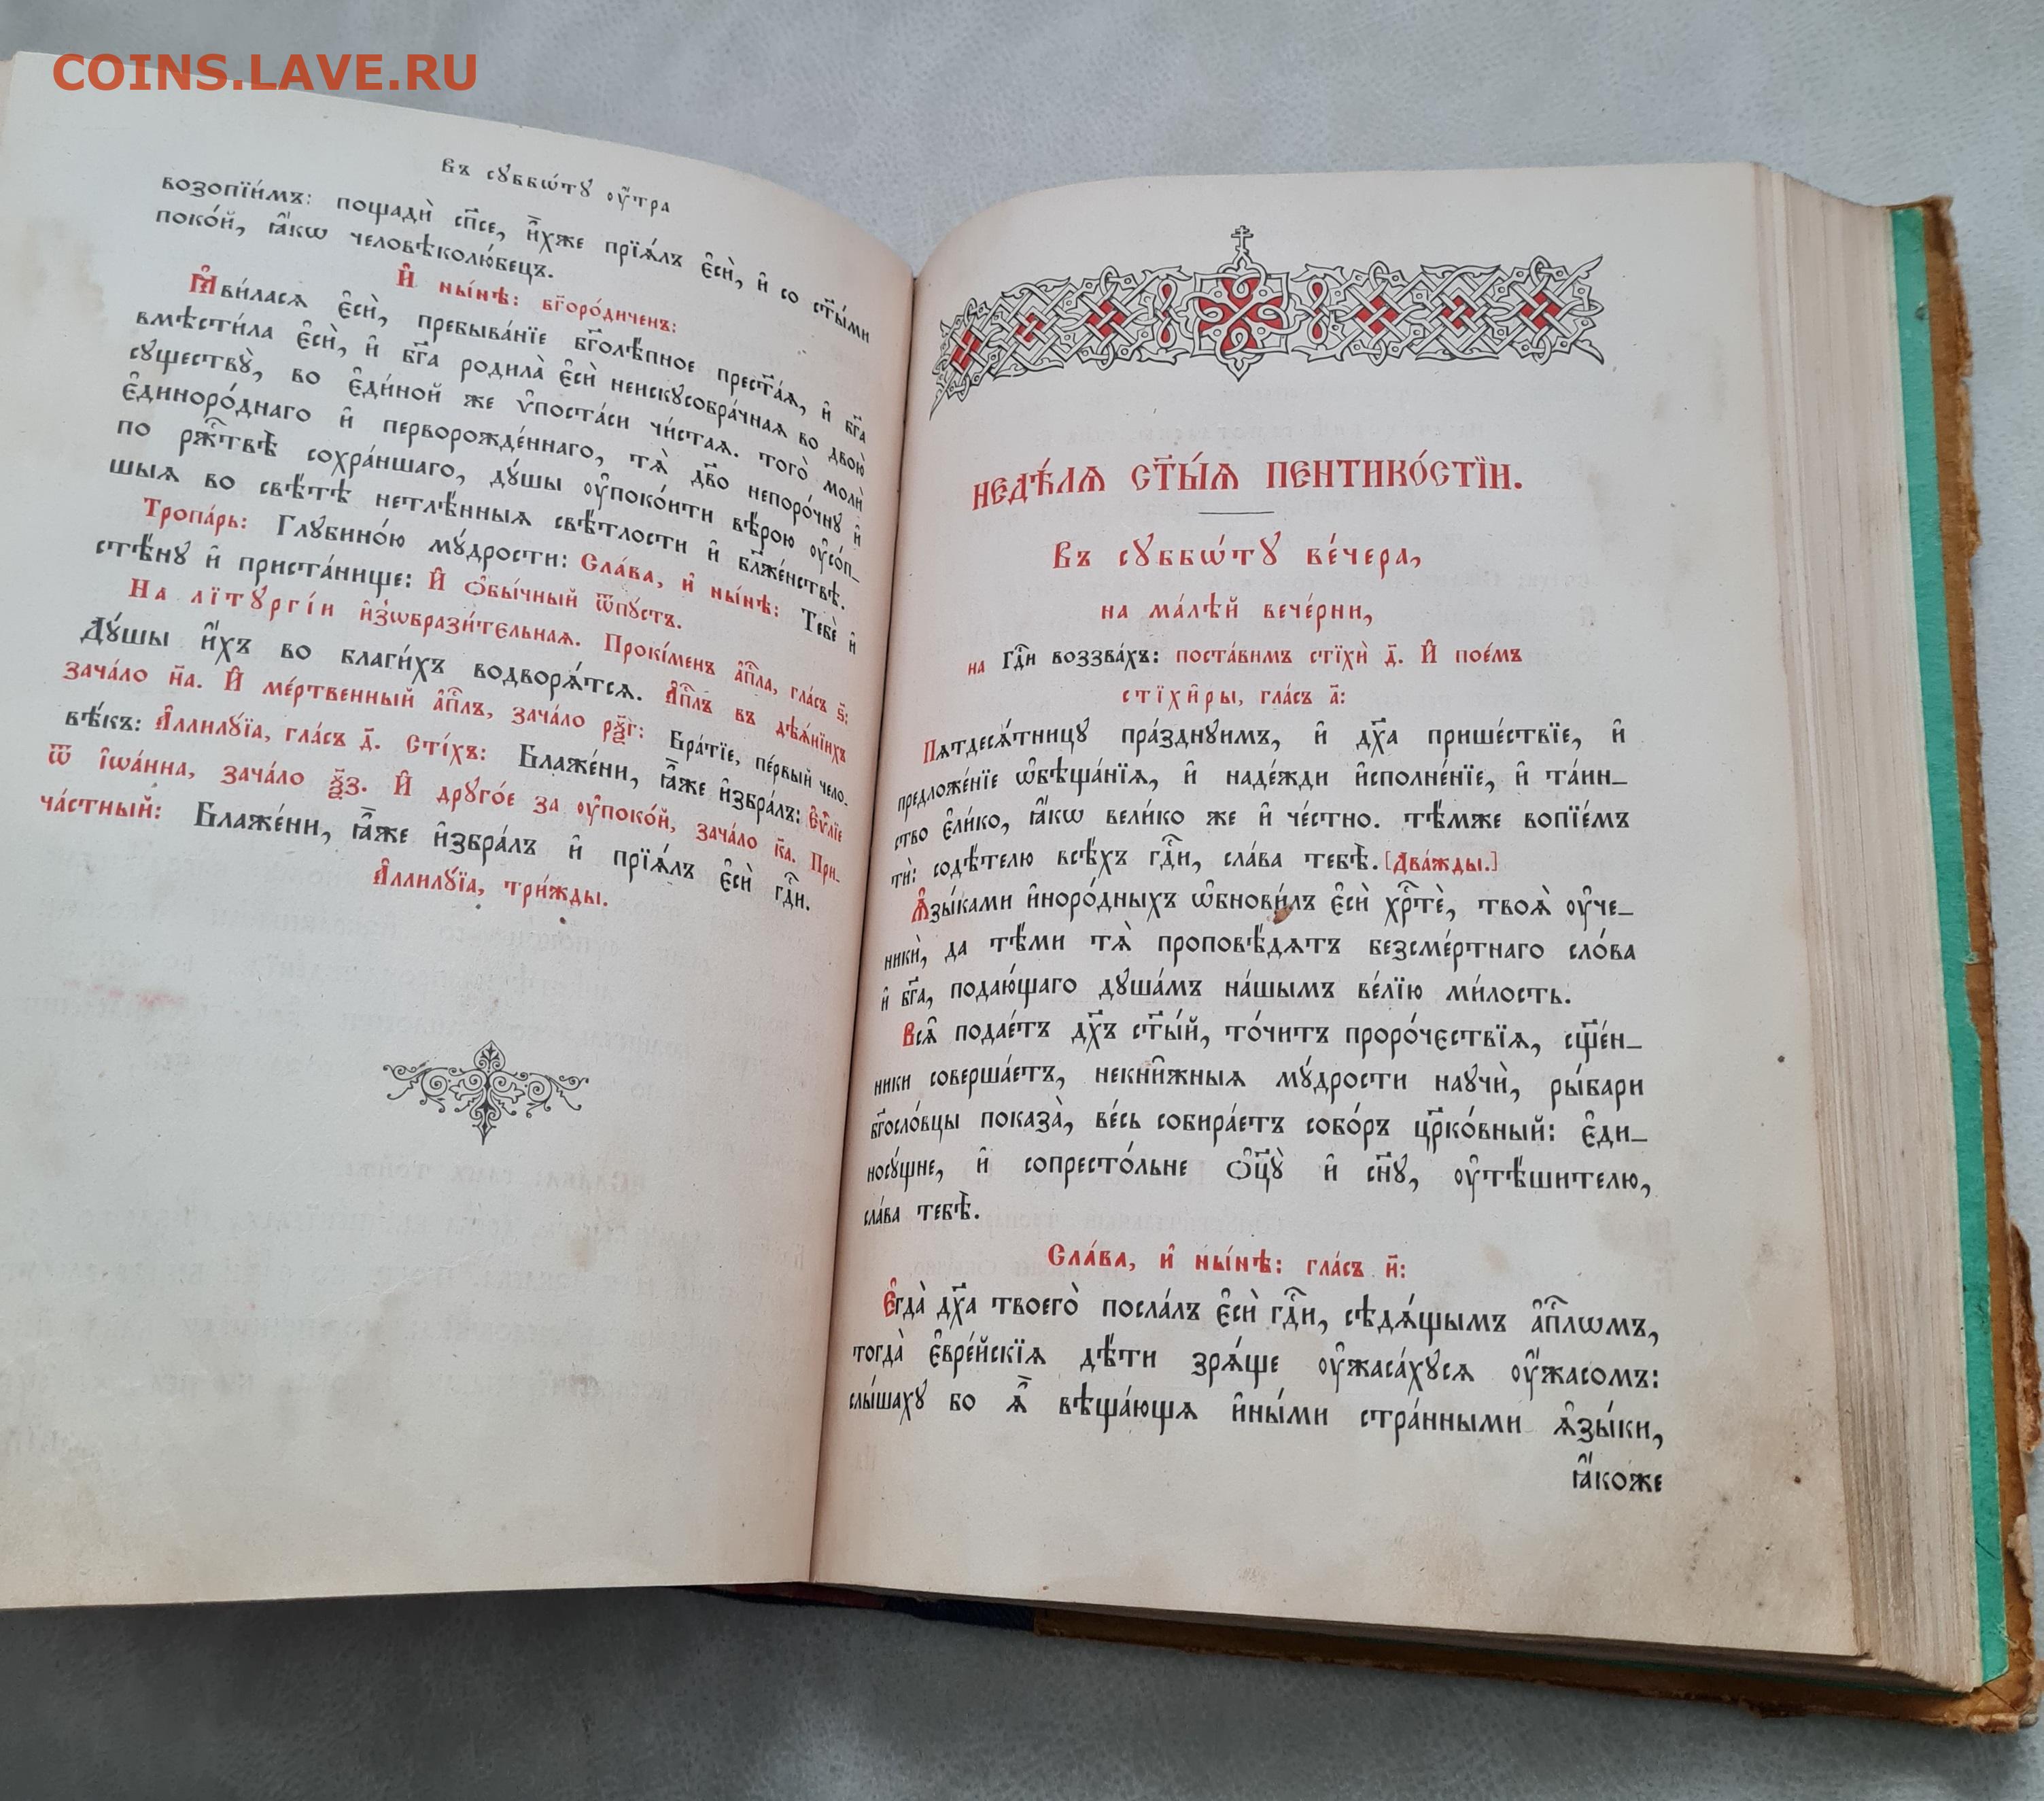 COINS.LAVE.RU
Въ сꙋббѡ́тꙋ оу҆́тра
возопїи́мъ: пощадѝ сп҃се, и҆̀хже прїѧ́лъ є҆сѝ, и҆ со ст҃ы́ми
поко́й, ꙗ҆́кѡ человѣколю́бецъ.
И҆ ны́нѣ: бг҃оро́диченъ:
Ꙗ҆ви́ласѧ є҆сѝ, пребыва́нїе бг҃олѣ́пное прест҃а́ѧ, и҆ бг҃а
вмѣсти́ла є҆сѝ, и҆ бг҃а родила̀ є҆сѝ неискꙋсобра́чнаѧ во двою̀
сꙋществꙋ̀, во є҆ди́ной же ѵ҆поста́си чи́стаѧ. того̀ молѝ
є҆диноро́днаго и҆ перворожде́ннаго, тѧ̀ дв҃о непоро́чнꙋ и҆
по рж҃твѣ̀ сохра́ншаго, дꙋ́шы оу҆поко́ити вѣ́рою оу҆со́п_
шыѧ во свѣ́тѣ нетлѣ́нныѧ свѣ́тлости и҆ бл҃же́нствѣ.
Тропа́рь: Глꙋбино́ю мꙋ́дрости: Сла́ва, и҆ ны́нѣ: Тебѐ и҆
стѣ́нꙋ и҆ приста́нище: И҆ ѻ҆бы́чный ѿпꙋ́стъ.
На лїтꙋргі́и и҆зѡбрази́тельнаѧ. Прокі́менъ а҆пⷭ҇ла, гла́съ ѕ҃:
Дꙋ́шы и҆́хъ во благи́хъ водворѧ́тсѧ. А҆пⷭ҇лъ въ дѣѧ́нїихъ
зача́ло н҃а. И҆ ме́ртвенный а҆пⷭ҇лъ, зача́ло рѯ҃г: Бра́тїе, пе́рвый чело_
вѣ́къ: А҆ллилꙋ́їа, гла́съ д҃. Сті́хъ: Блаже́ни, ꙗ҆̀же и҆збра́лъ: Є҆ѵⷢ҇лїе
ѿ і҆ѡа́нна, зача́ло ѯ҃з. И҆ дрꙋго́е за оу҆поко́й, зача́ло к҃а. При_
ча́стный: Блаже́ни, ꙗ҆̀же и҆збра́лъ и҆ прїѧ́лъ є҆сѝ гдⷭ҇и.
А҆ллилꙋ́їа, три́жды.
НЕДѢ́ЛѦ СТ҃Ы́Ѧ ПЕНТИКО́СТЇИ.
Въ сꙋббѡ́тꙋ ве́чера,
на ма́лѣй вече́рни,
на Гдⷭ҇и воззва́хъ: поста́вимъ стїхѝ д҃. И҆ пое́мъ
стїхи̑ры, гла́съ а҃:
Пѧтдесѧ́тницꙋ пра́зднꙋимъ, и҆ дх҃а прише́ствїе, и҆
предложе́нїе ѡ҆бѣща́нїѧ, и҆ наде́жди и҆сполне́нїе, и҆ та́ин_
ство є҆ли́ко, ꙗ҆́кѡ вели́ко же и҆ че́стно. тѣ́мже вопїе́мъ
тѝ: содѣ́телю всѣ́хъ гдⷭ҇и, сла́ва тебѣ̀. [Два́жды.]
Ѧ҆зы́ками и҆норо́дныхъ ѡ҆бнови́лъ є҆сѝ хрⷭ҇тѐ, твоѧ̀ оу҆че_
никѝ, да тѣ́ми тѧ̀ проповѣ́дѧтъ безсме́ртнаго сло́ва
и҆ бг҃а, подаю́щаго дꙋша́мъ на́шымъ ве́лїю ми́лость.
Всѧ̑ подае́тъ дх҃ъ ст҃ы́й, то́читъ проро́чєствїѧ, сщ҃е́н_
ники соверша́етъ, некни̑жныѧ мꙋ́дрости наꙋчѝ, ры́бари
бг҃осло́вцы показа̀, ве́сь собира́етъ собо́ръ цр҃ко́вный: є҆ди_
носꙋ́щне, и҆ сопресто́льне ѻ҆ц҃ꙋ̀ и҆ сн҃ꙋ, оу҆тѣ́шителю,
сла́ва тебѣ̀.
Сла́ва, и҆ ны́нѣ: гла́съ и҃:
Є҆гда̀ дх҃а твоего̀ посла́лъ є҆сѝ гдⷭ҇и, сѣдѧ́щымъ а҆пⷭ҇лѡмъ,
тогда̀ є҆вре́йскїѧ дѣ́ти зрѧ́ще оу҆жаса́хꙋсѧ оу҆́жасомъ:
слы́шахꙋ бо ѧ҆̀ вѣща́ющѧ и҆ны́ми стра́нными ѧ҆зы́ки,
ꙗ҆́коже